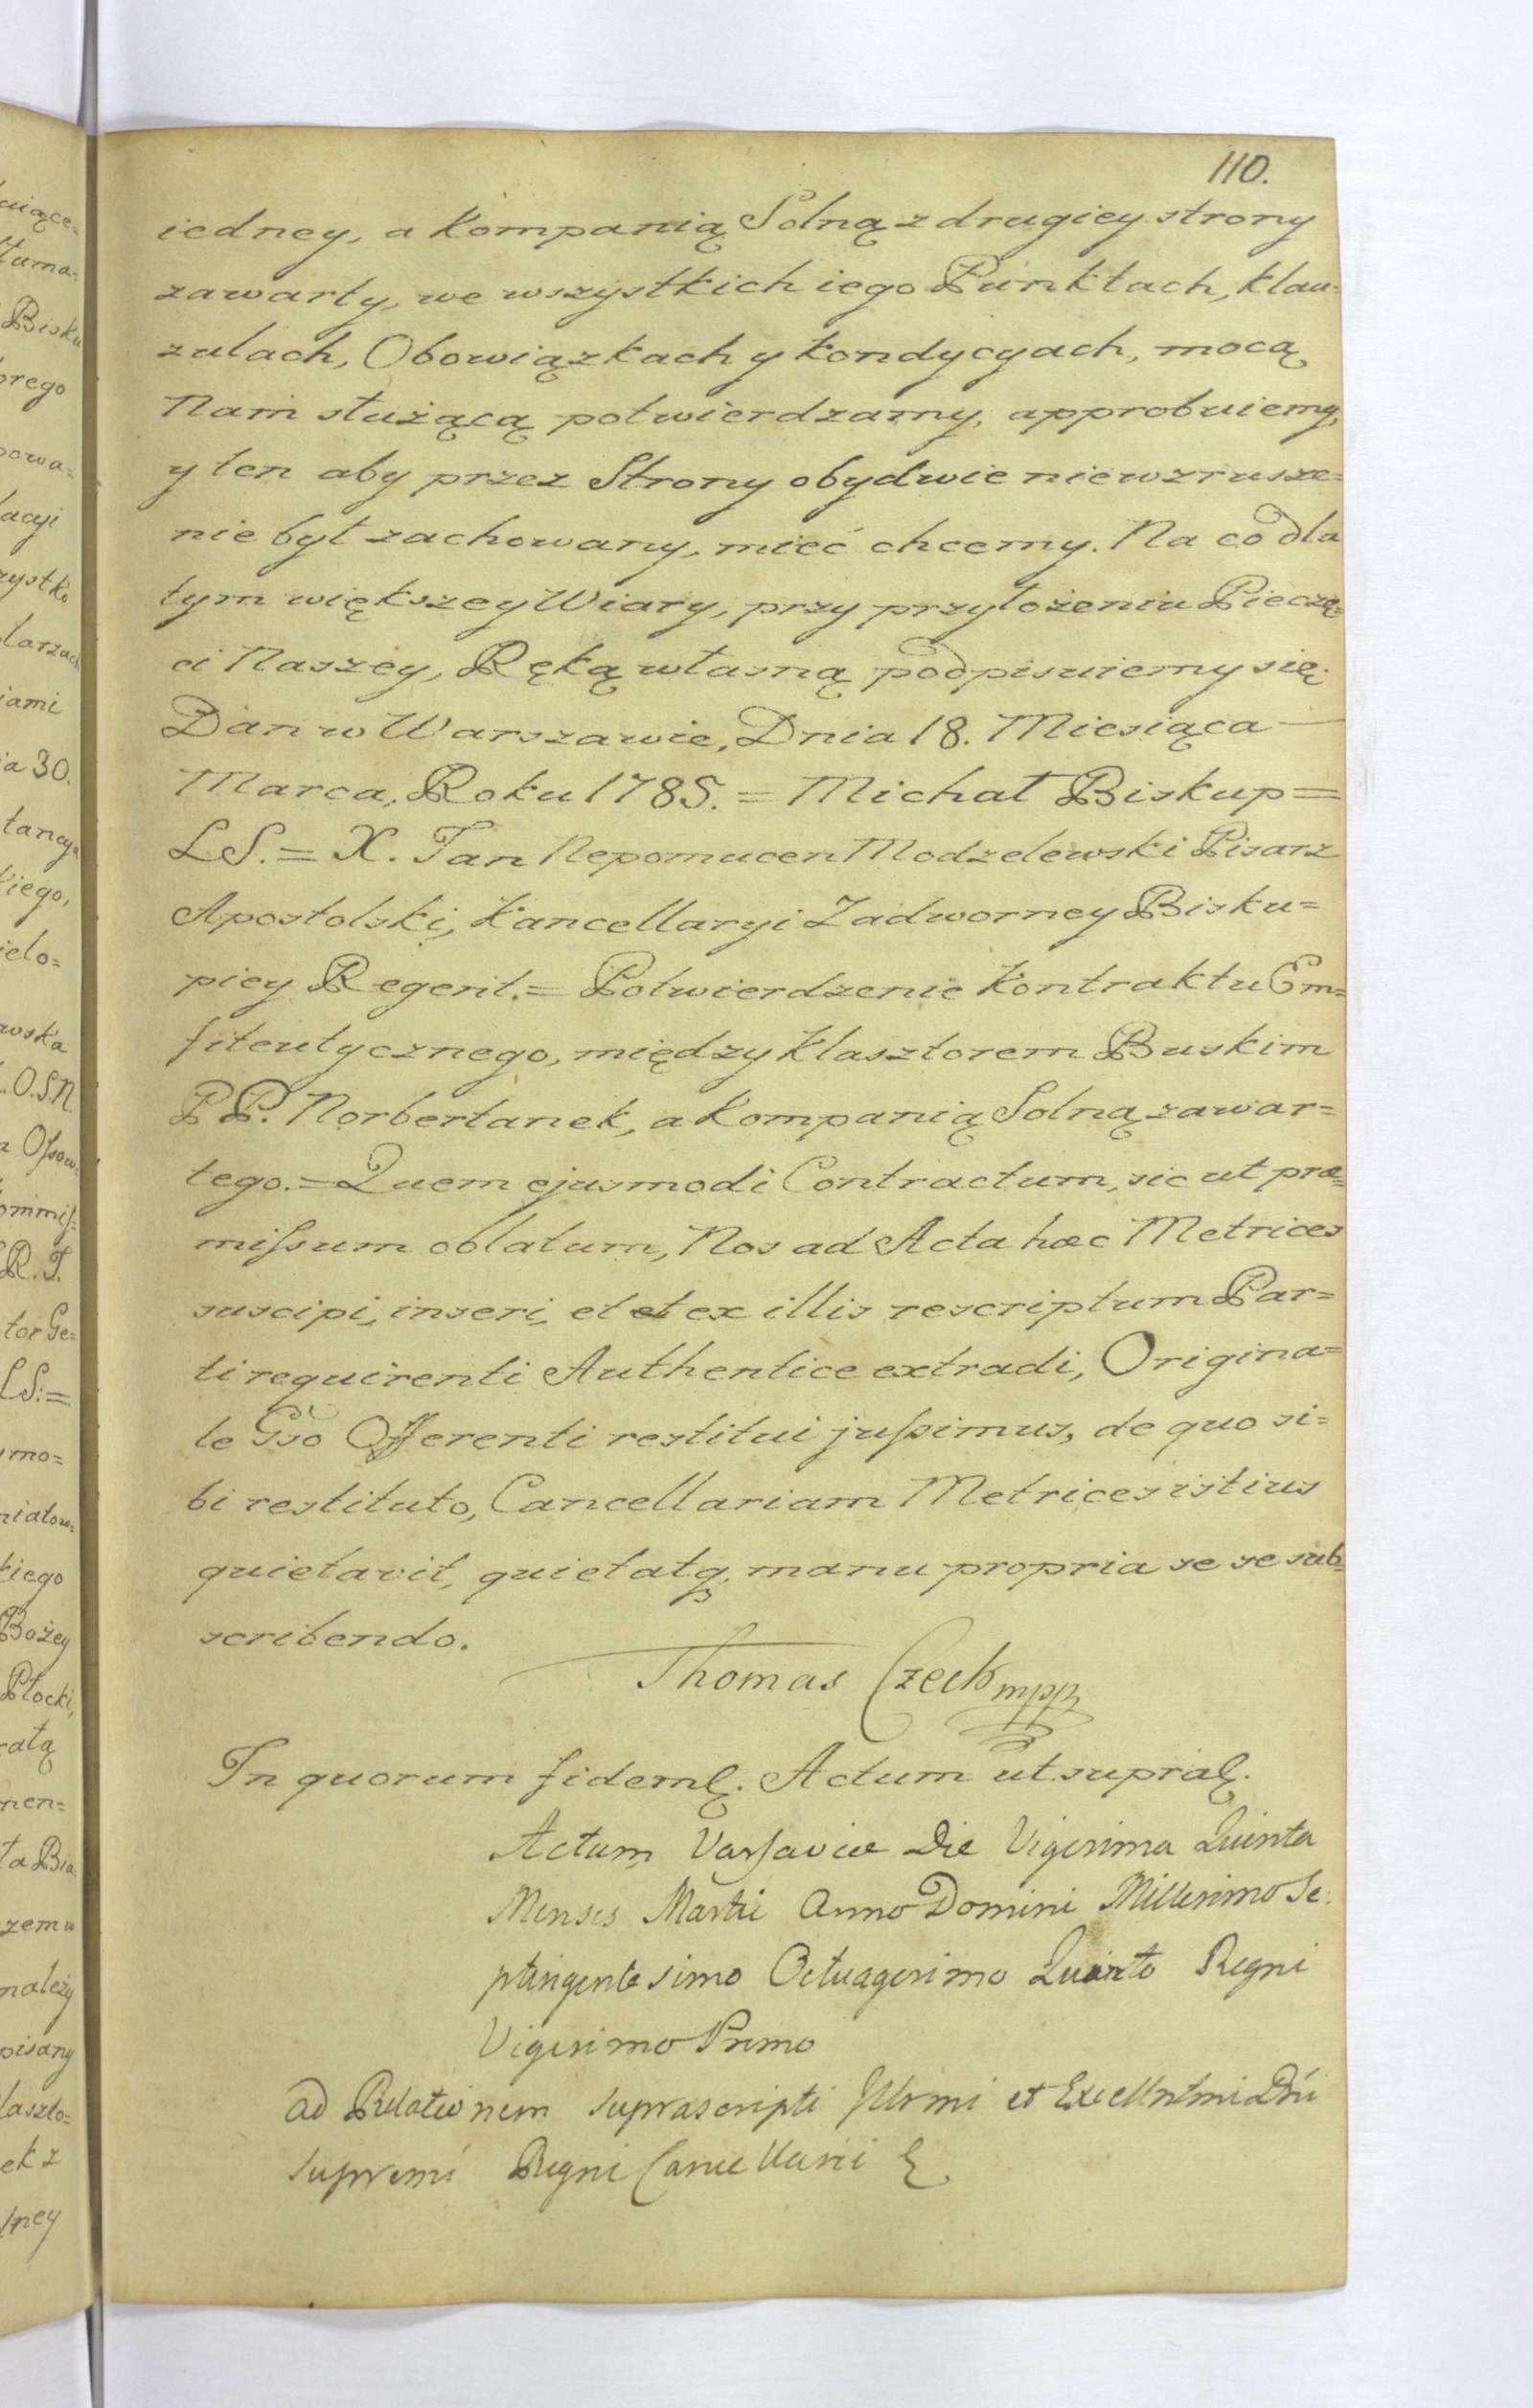 110.
iedney, a Kompanią Solną z drugiey strony
zawarty, we wszystkich iego Punktach, klau=
zulach, Obowiązkach y Kondycyach, mocą
Nam służącą potwierdzamy, approbuiemy,
y ten aby przez Strony obydwie niewzrusze=
nie był zachowany, mieć chcemy. Na co dla
tym większey Wiary, przy przyłożeniu Pieczę=
ci Naszey, Ręką własną podpisuiemy się.
Dan w Warszawie, Dnia 18. Miesiąca —
Marca, Roku 1785. = Michał Biskup =
LS. = X. Jan Nepomucen Modzelewski Pisarz
Apostolski, Kancellaryi Zadworney Bisku=
piey Regent. = Potwierdzenie Kontraktu Em=
fiteutycznego, między Klasztorem Buskim
PP. Norbertanek, a Kompanią Solną zawar=
tego. = Quem ejusmodi Contractum, sic ut præ=
missum oblatum, Nos ad Acta hæc Metrices
suscipi, inseri, et et ex illis rescriptum Par=
ti requirenti Authentice extradi, Origina=
le Gso Offerenti restitui jussimus, de quo si=
bi restituto, Cancellariam Metrices istius
quietavit, quietatq, manu propria se se sub=
scribendo.
Thomas Czech mpp
In quorum fidem. Actum ut supra.
Actum Varsaviæ Die Vigesima Quinta
Menses Martii Anno Domini Millesimo Se:
ptingentesimo Octuagesimo Quinto Regni
Vigesimo Primo
ad Relationem suprascripti Illrmi et Excellntmi Dni
Supremi Regni Cancellarii
uiące=
tuma=
Bisku
orego
powa=
lacyi
zystko
larzach
iami
ia 30.
kiego,
ielo=
wska
O.S.N.
ommis=
R. T.
tor Ge=
LS: =
umo=
kiego
Bożey
Płocki,
ratą
men=
ta Bia
zem w
należy
pisany
laszto=
ek z